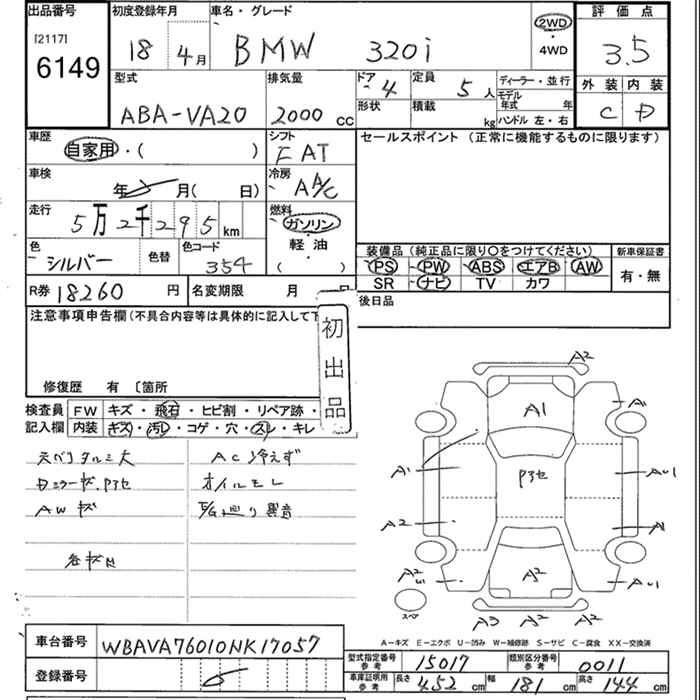 出品番号 初度登録年月 車名・グレード 評価点
[2117] 18 4月 BMW 320i 2WD 3.5
6149 4WD
型式 排気量 ドア 4 定員 5人 ディーラー・並行 外装 内装
モデル年式 年
ABA-VA20 2000 CC 形状 積載 kg ハンドル 左・右 C D
車歴 シフト セールスポイント (正常に機能するものに限ります)
自家用・( ) FAT
車検 冷房
年 月( 日) AA/C
走行 燃料
5万2千295km ガソリン
色 色替 色コード 軽油 装備品(純正品に限り○をつけてください) 新車保証書
シルバー 354 ( ) PS PW ABS エアB AW 有・無
SR ナビ TV カワ
R券 18260 円 名変期限 月 後日品
注意事項申告欄(不具合内容等は具体的に記入して下
初出品
修復歴 有 〔箇所
検査員 FW キズ・飛石・ヒビ割・リペア跡・
記入欄 内装 キズ・汚レ・コゲ・穴・スレ・キレ
天ベリタルミ大 AC冷えず
オイルモレ
AWキズ E/G廻り異音
A2
A1 A1
A1 P3セ AU1
A2 A1
A2 A2 AU1
スペ
A3 A2 A2
A-キズ E-エクボ U-凹み W-補修跡 S-サビ C-腐食 XX-交換済
車台番号 WBAVA76010NK17057
型式指定番号参考 15017 類別区分番号参考 0011
登録番号 車庫証明用参考 長さ 452 cm 幅 181 cm 高さ 144 cm